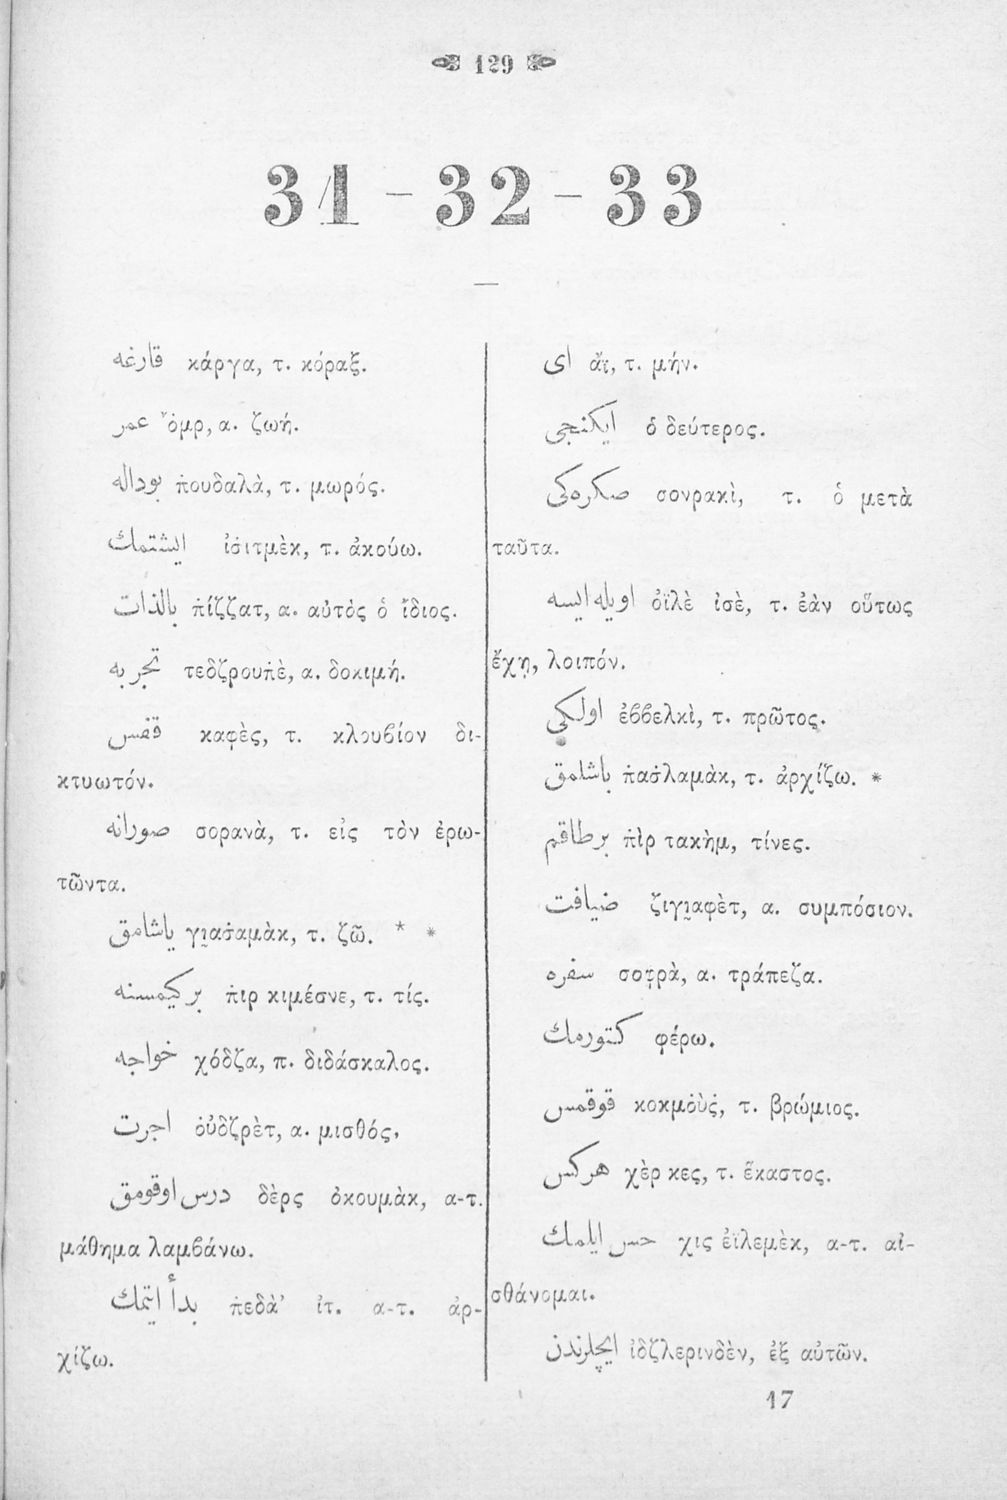 129
31-32-33
قارغه κάργα, τ. κόραξ.
عمر ὀμρ, α. ζωή.
بوداله π̇ουδαλὰ, τ. μωρός.
ایشتمك ἰσ̇ιτμὲκ, τ. ἀκούω.
بالذات π̇ίζζατ, α. αὐτὸς ὁ ἴδιος.
تجربه τεδζρουπ̇ὲ, α. δοκιμή.
قفس καφὲς, τ. κλουβίον δι-
κτυωτόν.
صورانه σορανὰ, τ. εἰς τὸν ἐρω-
τῶντα.
یاشامق γι̯ασ̇αμὰκ, τ. ζῶ. * *
بر كیمسنه π̇ιρ κιμέσνε, τ. τίς.
خواجه χόδζα, π. διδάσκαλος.
اجرت οὐ̇δζρὲτ, α. μισθός.
درس اوقومق δὲρς ὀκουμὰκ, α-τ.
μάθημα λαμβάνω.
بدأ ایتمك π̇εδὰ’ ἰτ. α-τ. ἀρ-
χίζω.
ای ἄϊ, τ. μήν.
ایكنجی ὁ δεύτερος.
صكره‌كی σονρακὶ, τ. ὁ μετὰ
ταῦτα.
اویله ایسه ὀϊλὲ ἰσὲ, τ. ἐὰν οὕτως
ἔχῃ, λοιπόν.
اولكی ἐββελκὶ, τ. πρῶτος.
باشلامق π̇ασ̇λαμὰκ, τ. ἀρχίζω. *
برطاقم π̇ὶρ τακὴμ, τίνες.
ضیافت ζιγι̯αφὲτ, α. συμπόσιον.
سفره σοφρὰ, α. τράπεζα.
كتورمك φέρω.
قوقمس κοκμοὺς, τ. βρώμιος.
هركس χὲρ κες, τ. ἕκαστος.
حس ایلمك χις ἐϊλεμὲκ, α-τ. αἰ-
σθάνομαι.
ایچلرندن ἰδζλερινδὲν, ἐξ αὐτῶν.
17